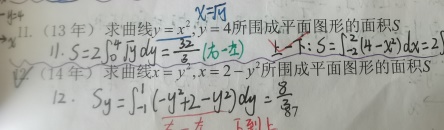 x=√y
11. (13年) 求曲线y = x², y = 4所围成平面图形的面积S
11. S=2∫₀⁴√y dy = 32/3 (右-左) 上-下: S=∫₋₂²(4-x²)dx=2∫
12. (14年) 求曲线x = y², x = 2 − y²所围成平面图形的面积S
12. Sy=∫₋₁¹(-y²+2-y²)dy = 8/3
右-左 下到上 87